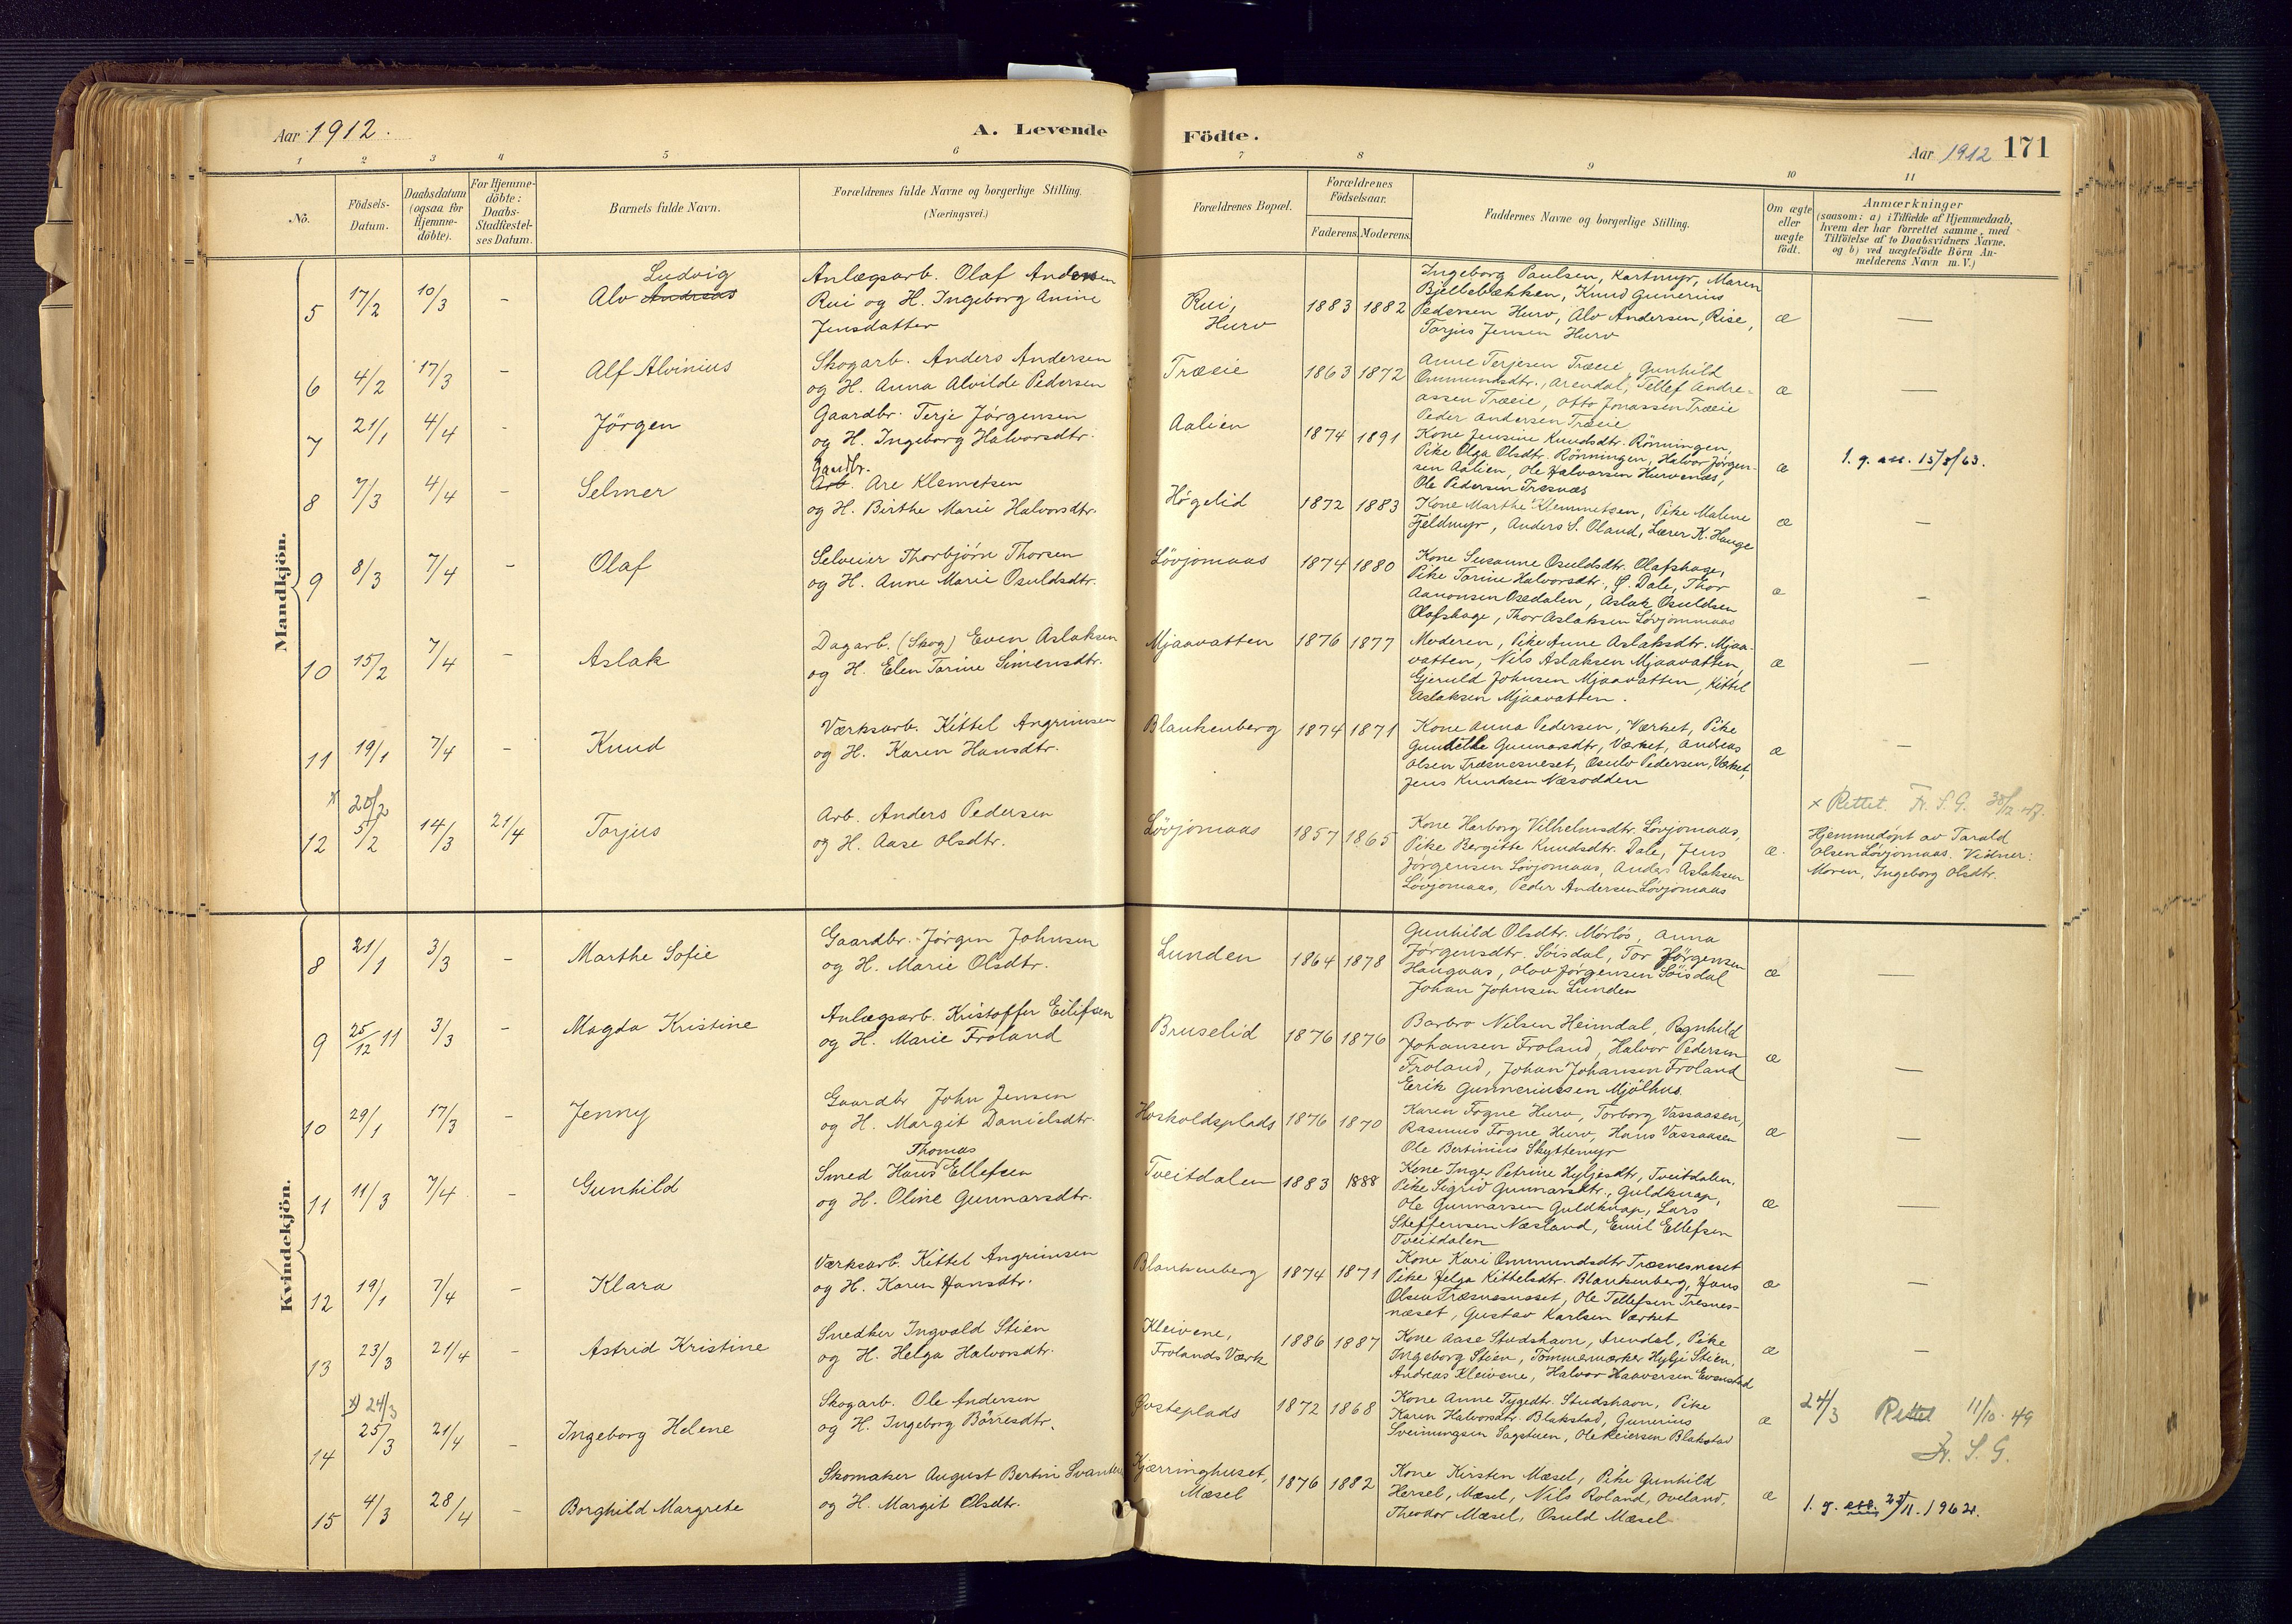 Aar 1912.
A. Levende
Födte.
Aar 1912
171
1 2 3 4 5 6 7 8 9 10 11
No.
Födsels-Datum.
Daabsdatum (ogsaa for Hjemme-döbte).
For Hjemme-döbte: Daabs-Stadfæstel-ses Datum.
Barnets fulde Navn.
Forældrenes fulde Navne og borgerlige Stilling.
(Næringsvei.)
Forældrenes Bopæl.
Forældrenes Födselsaar.
Faderens. Moderens.
Faddernes Navne og borgerlige Stilling.
Om ægte eller uægte födt.
Anmærkninger
(saasom: a) i Tilfælde af Hjemmedaab,
hvem der har forrettet samme, med
Tilföielse af to Daabsvidners Navne,
og b) ved uægtefödte Börn An-
melderens Navn m. V.)
Mandkjön.
5 17/2 10/3 -
Ludvig
Alv Andreas
Anlægsarb. Olaf Andersen
Rui og H. Ingeborg Anine
Jensdatter
Rui,
Hurv
1883 1882
Ingeborg Paulsen, Kartmyr, Maren
Bjellebækken, Knud Gunerius
Pedersen Hurv, Alv Andersen, Rise,
Torjus Jensen Hurv
æ —
6 4/2 17/3 -
Alf Alvinius
Skogarb. Anders Andersen
og H. Anna Alvilde Pedersen
Træeie
1863 1872
Anne Terjesen Træeie, Gunhild
Ommundsdtr., Arendal, Tellef Andre-
assen Træeie, Otto Jonassen Træeie
Peder Andersen Træeie
æ —
7 21/1 4/4 -
Jörgen
Gaardbr. Terje Jörgensen
og H. Ingeborg Halvorsdtr.
Aalien
1874 1891
Kone Jensine Knudsdtr. Rönningen,
Pike Olga Olsdtr. Rönningen, Halvor Jörgen-
sen Aalien, Ole Halvorsen Hurvenes,
Ole Pedersen Træsnæs
æ
1. g. att. 15/5/63.
8 7/3 4/4 -
Selmer
Gaardbr.
Arb. Are Klemetsen
og H. Birthe Marie Halvorsdtr.
Högelid
1872 1883
Kone Marthe Klemmetsen, Pike Malene
Fjeldmyr, Anders S. Oland, Lærer K. Hauge
æ —
9 8/3 7/4 -
Olaf
Selveier Thorbjörn Thorsen
og H. Anne Marie Osuldsdtr.
Lövjomaas
1874 1880
Kone Susanne Osuldsdtr. Olafshage,
Pike Torine Halvorsdtr., Ö. Dale, Thor
Aanonsen Osedalen, Aslak Osuldsen
Olafshage, Thor Aslaksen Lövjommaas
æ —
10 15/2 7/4 -
Aslak
Dagarb. (Skog) Even Aslaksen
og H. Elen Torine Simensdtr.
Mjaavatten
1876 1877
Moderen, Pike Anne Aslaksdtr. Mjaa-
vatten, Nils Aslaksen Mjaavatten,
Gjeruld Johnsen Mjaavatten, Kittel
Aslaksen Mjaavatten.
æ —
11 19/1 7/4 -
Knud
Værksarb. Kittel Angrimsen
og H. Karen Hansdtr.
Blankenberg
1874 1871
Kone Anna Pedersen, Værket, Pike
Gundelle Gunnarsdtr, Værket, Andreas
Olsen Træsnesneset, Osulv Pedersen, Værket,
Jens Knudsen Næsodden
æ —
x 20/2
12 5/2 14/3 21/4
Torjus
Arb. Anders Pedersen
og H. Aase Olsdtr.
Lövjomaas
1857 1865
Kone Harborg Vilhelmsdtr. Lövjomaas,
Pike Bergitte Knudsdtr. Dale, Jens
Jörgensen Lövjomaas, Anders Aslaksen
Lövjomaas, Peder Andersen Lövjomaas
æ.
x Rettet. Fr. S. G. 30/12 47.
Hjemmedöpt av Tarald
Olsen Lövjomaas. Vidner:
Moren, Ingeborg Olsdtr.
Kvindekjön.
8 21/1 3/3 -
Marthe Sofie
Gaardbr. Jörgen Johnsen
og H. Marie Olsdtr.
Lunden
1864 1878
Gunhild Olsdtr. Mörlös, Anna
Jörgensdtr. Söisdal, Tor Jörgensen
Haugaas, Olav Jörgensen Söisdal
Johan Johnsen Lunden
æ —
9 25/12 11 3/3 -
Magda Kristine
Anlægsarb. Kristoffer Eilifsen
og H. Marie Froland
Bruselid
1876 1876
Barbro Nilsen Heimdal, Ragnhild
Johansen Froland, Halvor Pedersen
Froland, Johan Johansen Froland
Eerik Gunneriussen Mjölhus.
æ —
10 29/1 17/3 -
Jenny
Gaardbr John Jensen
og H. Margit Danielsdtr.
Hoskoldsplads
1876 1870
Karen Fogne Hurv, Torborg Vassaasen,
Rasmus Fogne Hurv, Hans Vassaasen
Ole Bertinius Skyttemyr
æ —
11 11/3 7/4 -
Gunhild
Thomas
Smed Hans Ellefsen
og H. Oline Gunnarsdtr.
Tveitdalen
1883 1888
Kone Inger Petrine Hyljesdtr, Tveitdalen,
Pike Sigrid Gunnarsdtr., Guldknap,
Ole Gunnarsen Guldknap, Lars
Steffensen Næsland, Emil Ellefsen
Tveitdalen
æ —
12 19/1 7/4 -
Klara
Værksarb. Kittel Angrimsen
og H. Karen Hansdtr.
Blankenberg
1874 1871
Kone Kari Ommundsdtr Træsnesneset
Pike Helga Kittelsdtr. Blankenberg, Hans
Olsen Træsnesneset, Ole Tellefsen Tresnes-
næset, Gustav Karlsen Værket
æ —
13 23/3 21/4 -
Astrid Kristine
Snedker Ingvald Stien
og H. Helga Halvorsdtr.
Kleivene,
Frolands Værk
1886 1887
Kone Aase Studshavn, Arendal, Pike
Ingeborg Stien, Tömmermærker Hylje Stien,
Andreas Kleivene, Halvor Haaversen Evenstad
æ —
x) 24/3
14 25/3 21/4 -
Ingeborg Helene
Skogarb. Ole Andersen
og H. Ingeborg Börresdtr.
Övsteplads
1872 1868
Kone Anne Tygedtr. Studshavn, Pike
Karen Halvorsdtr. Blakstad, Gunerius
Sveinungsen Sagstuen, Ole Reiersen Blakstad
æ
24/3 Rettet 11/10 49
Fr. S. G.
15 4/3 28/4
Borghild Margrete
Skomaker August Bertin Svantes
og H. Margit Olsdtr.
Kjærringhuset,
Mæsel
1876 1882
Kone Kirsten Mæsel, Pike Gunhild
Hersel, Mæsel, Nils Roland, Oveland,
Theodor Mæsel, Osuld Mæsel
æ
1. g. att. 23/11. 1962.